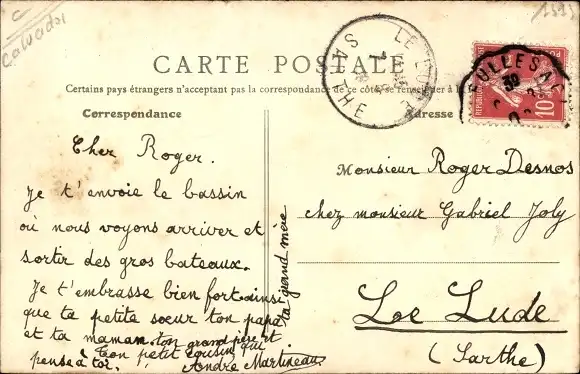 Calvados
CARTE POSTALE
Certains pays étrangers n'acceptant pas la correspondance de ce côté, se renseigner à la
Correspondance
Adresse
LE LUDE
SARTHE
REPUBLIQUE
10
Cher Roger.
Je t'envoie le bassin
où nous voyons arriver et
sortir des gros bateaux.
Je t'embrasse bien fort ainsi
que ta petite sœur ton papa
et ta maman. ton grand père et
ta grand mère
ton petit cousin qui
pense à toi. André Martineau
Monsieur Roger Desnos
chez monsieur Gabriel Joly
Le Lude
(Sarthe)